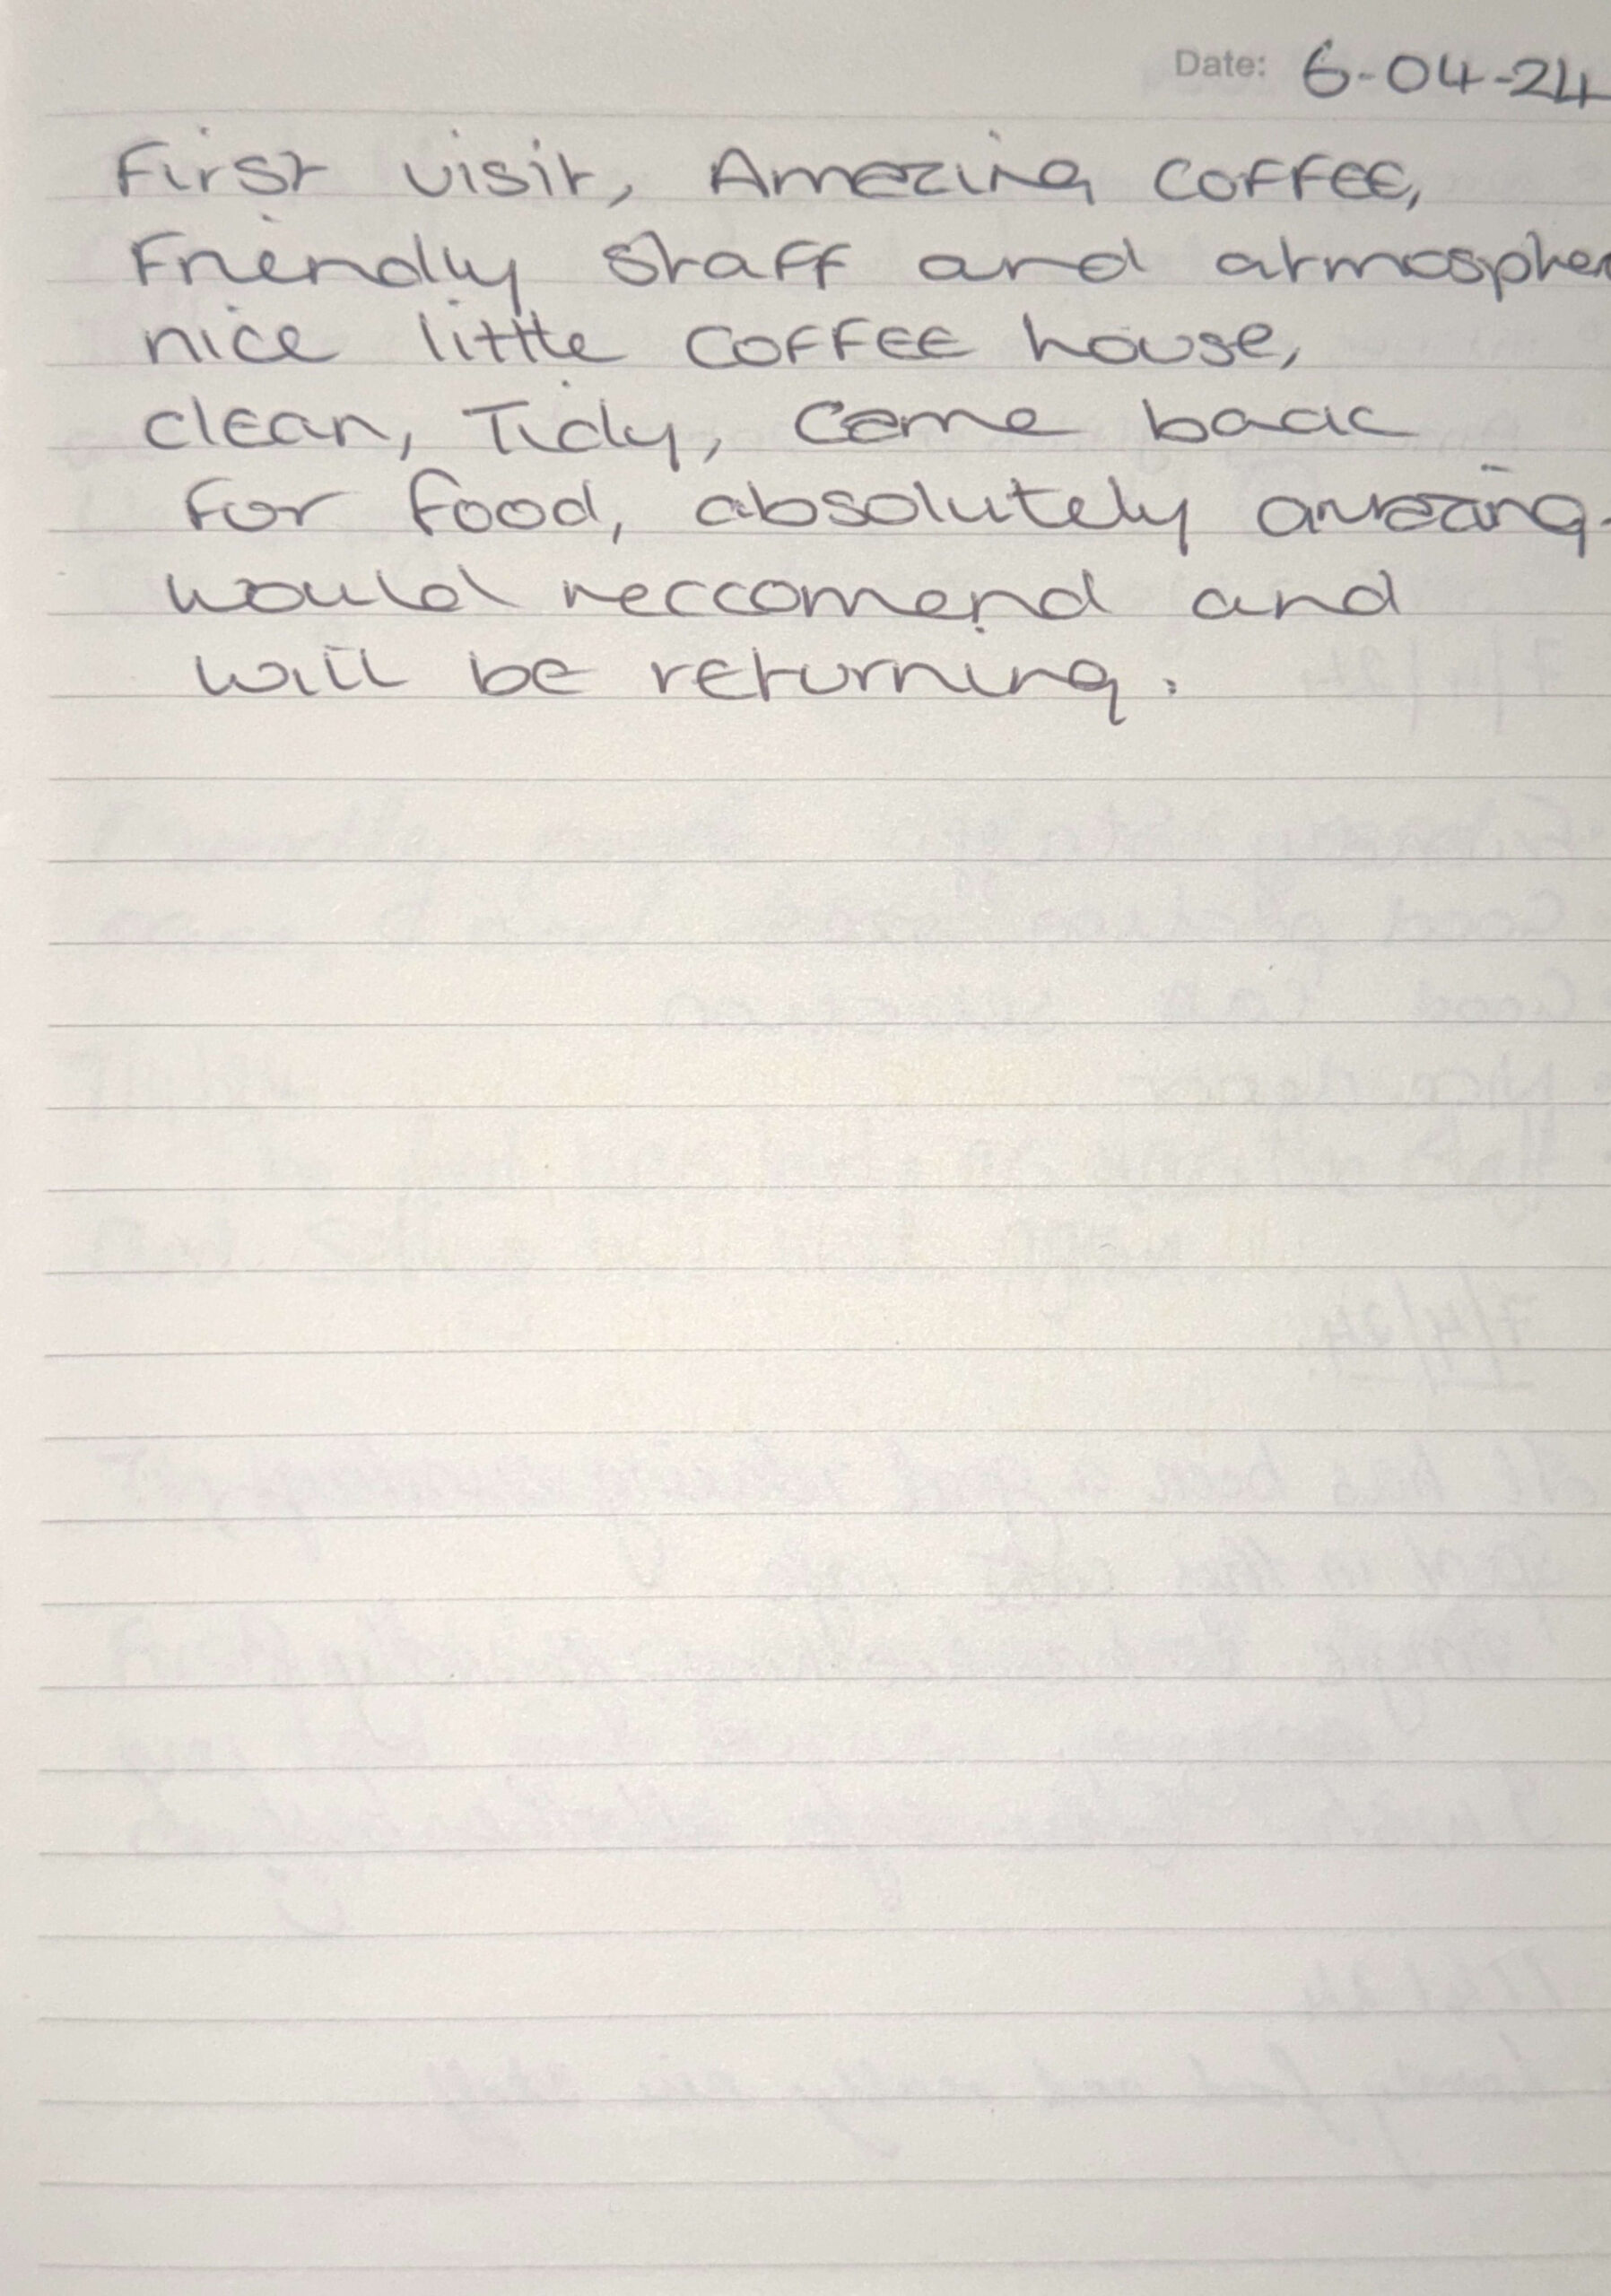 Date: 6-04-24
First visit, Amazing coffee,
Friendly staff and atmospher
nice little coffee house,
clean, Tidy, Came back
for food, absolutely amazing.
would reccomend and
will be returning.